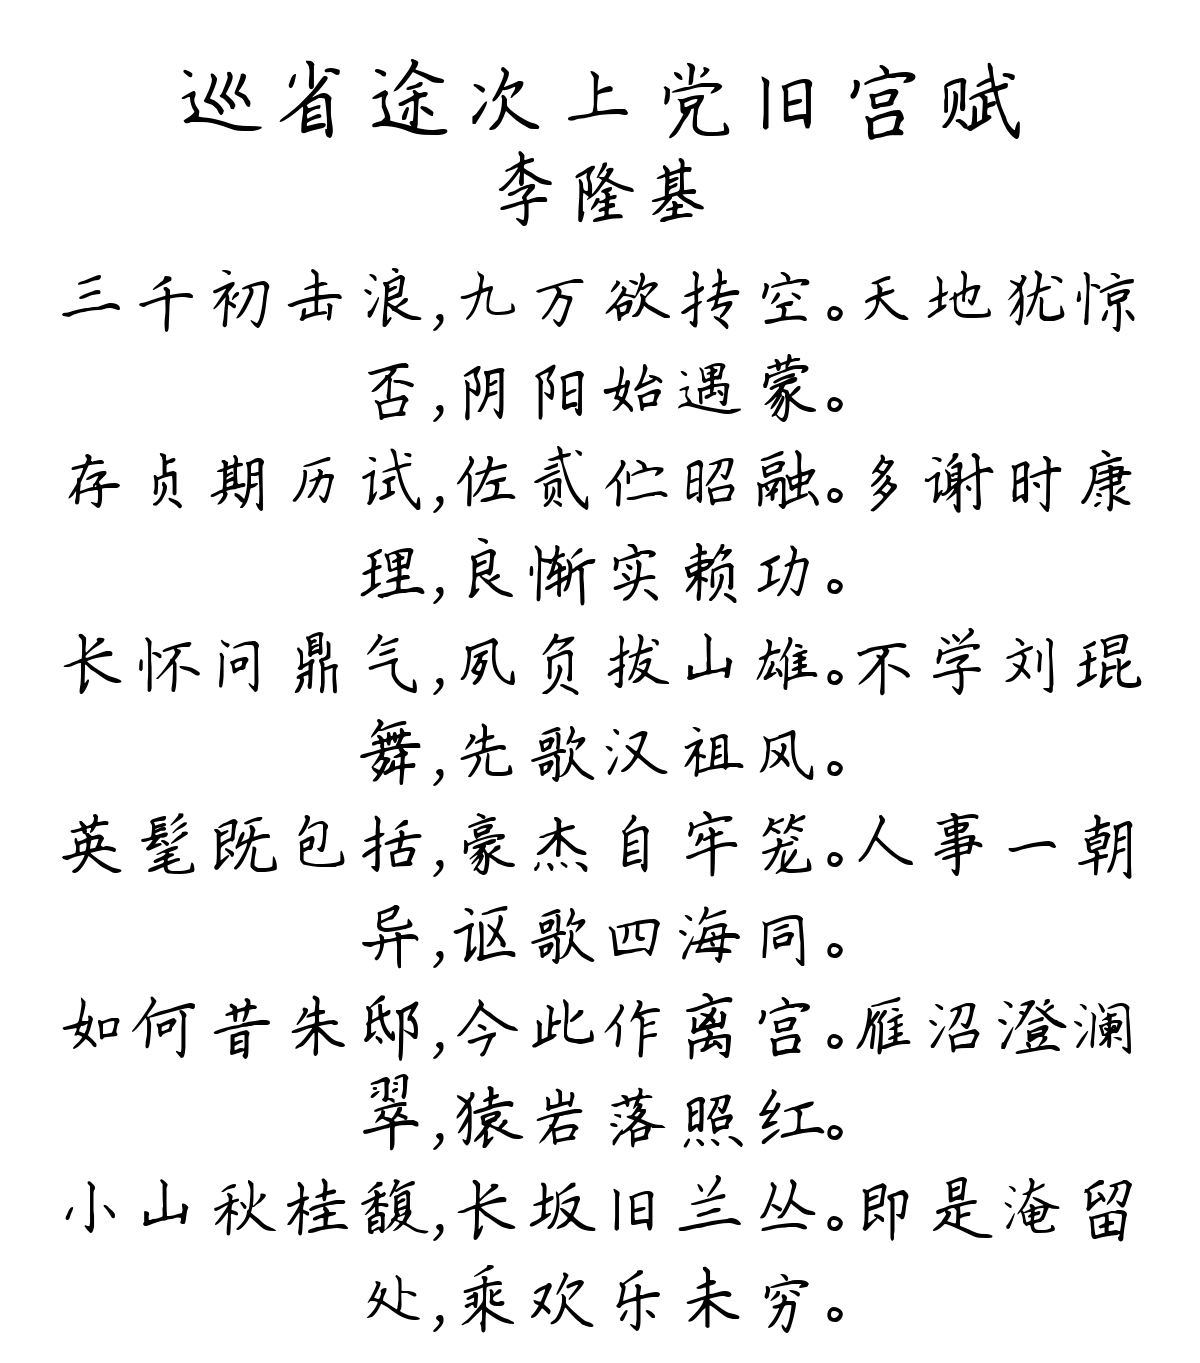 巡省途次上党旧宫赋
李隆基
三千初击浪,九万欲抟空。天地犹惊
否,阴阳始遇蒙。
存贞期历试,佐贰伫昭融。多谢时康
理,良惭实赖功。
长怀问鼎气,夙负拔山雄。不学刘琨
舞,先歌汉祖风。
英髦既包括,豪杰自牢笼。人事一朝
异,讴歌四海同。
如何昔朱邸,今此作离宫。雁沼澄澜
翠,猿岩落照红。
小山秋桂馥,长坂旧兰丛。即是淹留
处,乘欢乐未穷。